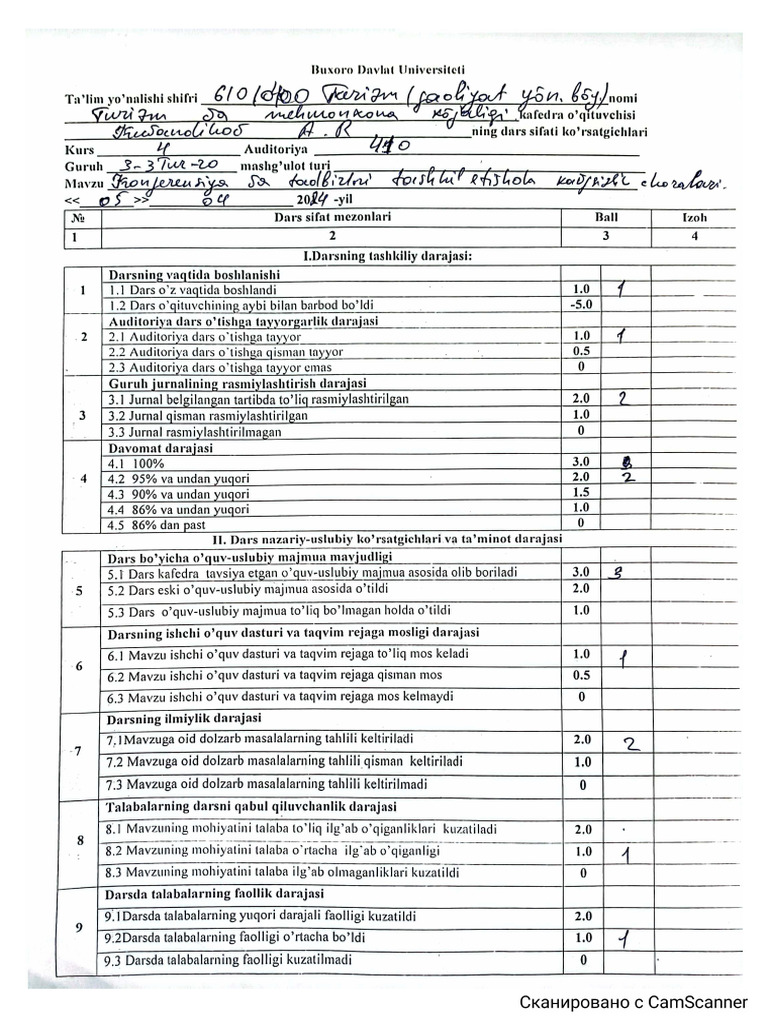 Buxoro Davlat Universiteti
Ta'lim yo'nalishi shifri 610 Turizm (faoliyat yön. böy) nomi
Turizm va mehmonxona xöjaligi kafedra o'qituvchisi
A.R ning dars sifati ko'rsatgichlari
Kurs 4 Auditoriya 410
Guruh 3-3 Tur-20 mashg'ulot turi
Mavzu Konferensiya va tadbirlarni tashkil etishda xavfsizlik choralari.
<< 05 >> 04 2024 -yil
№ Dars sifat mezonlari Ball Izoh
1 2 3 4
I.Darsning tashkiliy darajasi:
Darsning vaqtida boshlanishi
1 1.1 Dars o'z vaqtida boshlandi 1.0 1
1.2 Dars o'qituvchining aybi bilan barbod bo'ldi -5.0
Auditoriya dars o'tishga tayyorgarlik darajasi
2 2.1 Auditoriya dars o'tishga tayyor 1.0 1
2.2 Auditoriya dars o'tishga qisman tayyor 0.5
2.3 Auditoriya dars o'tishga tayyor emas 0
Guruh jurnalining rasmiylashtirish darajasi
3.1 Jurnal belgilangan tartibda to'liq rasmiylashtirilgan 2.0 2
3 3.2 Jurnal qisman rasmiylashtirilgan 1.0
3.3 Jurnal rasmiylashtirilmagan 0
Davomat darajasi
4.1 100% 3.0
4 4.2 95% va undan yuqori 2.0 2
4.3 90% va undan yuqori 1.5
4.4 86% va undan yuqori 1.0
4.5 86% dan past 0
II. Dars nazariy-uslubiy ko'rsatgichlari va ta'minot darajasi
Dars bo'yicha o'quv-uslubiy majmua mavjudligi
5.1 Dars kafedra tavsiya etgan o'quv-uslubiy majmua asosida olib boriladi 3.0 3
5 5.2 Dars eski o'quv-uslubiy majmua asosida o'tildi 2.0
5.3 Dars o'quv-uslubiy majmua to'liq bo'lmagan holda o'tildi 1.0
Darsning ishchi o'quv dasturi va taqvim rejaga mosligi darajasi
6 6.1 Mavzu ishchi o'quv dasturi va taqvim rejaga to'liq mos keladi 1.0 1
6.2 Mavzu ishchi o'quv dasturi va taqvim rejaga qisman mos 0.5
6.3 Mavzu ishchi o'quv dasturi va taqvim rejaga mos kelmaydi 0
Darsning ilmiylik darajasi
7.1Mavzuga oid dolzarb masalalarning tahlili keltiriladi 2.0 2
7 7.2 Mavzuga oid dolzarb masalalarning tahlili qisman keltiriladi 1.0
7.3 Mavzuga oid dolzarb masalalarning tahlili keltirilmadi 0
Talabalarning darsni qabul qiluvchanlik darajasi
8.1 Mavzuning mohiyatini talaba to'liq ilg'ab o'qiganliklari kuzatiladi 2.0
8 8.2 Mavzuning mohiyatini talaba o'rtacha ilg'ab o'qiganligi 1.0 1
8.3 Mavzuning mohiyatini talaba ilg'ab olmaganliklari kuzatildi 0
Darsda talabalarning faollik darajasi
9.1Darsda talabalarning yuqori darajali faolligi kuzatildi 2.0
9 9.2Darsda talabalarning faolligi o'rtacha bo'ldi 1.0 1
9.3 Darsda talabalarning faolligi kuzatilmadi 0
Сканировано с CamScanner